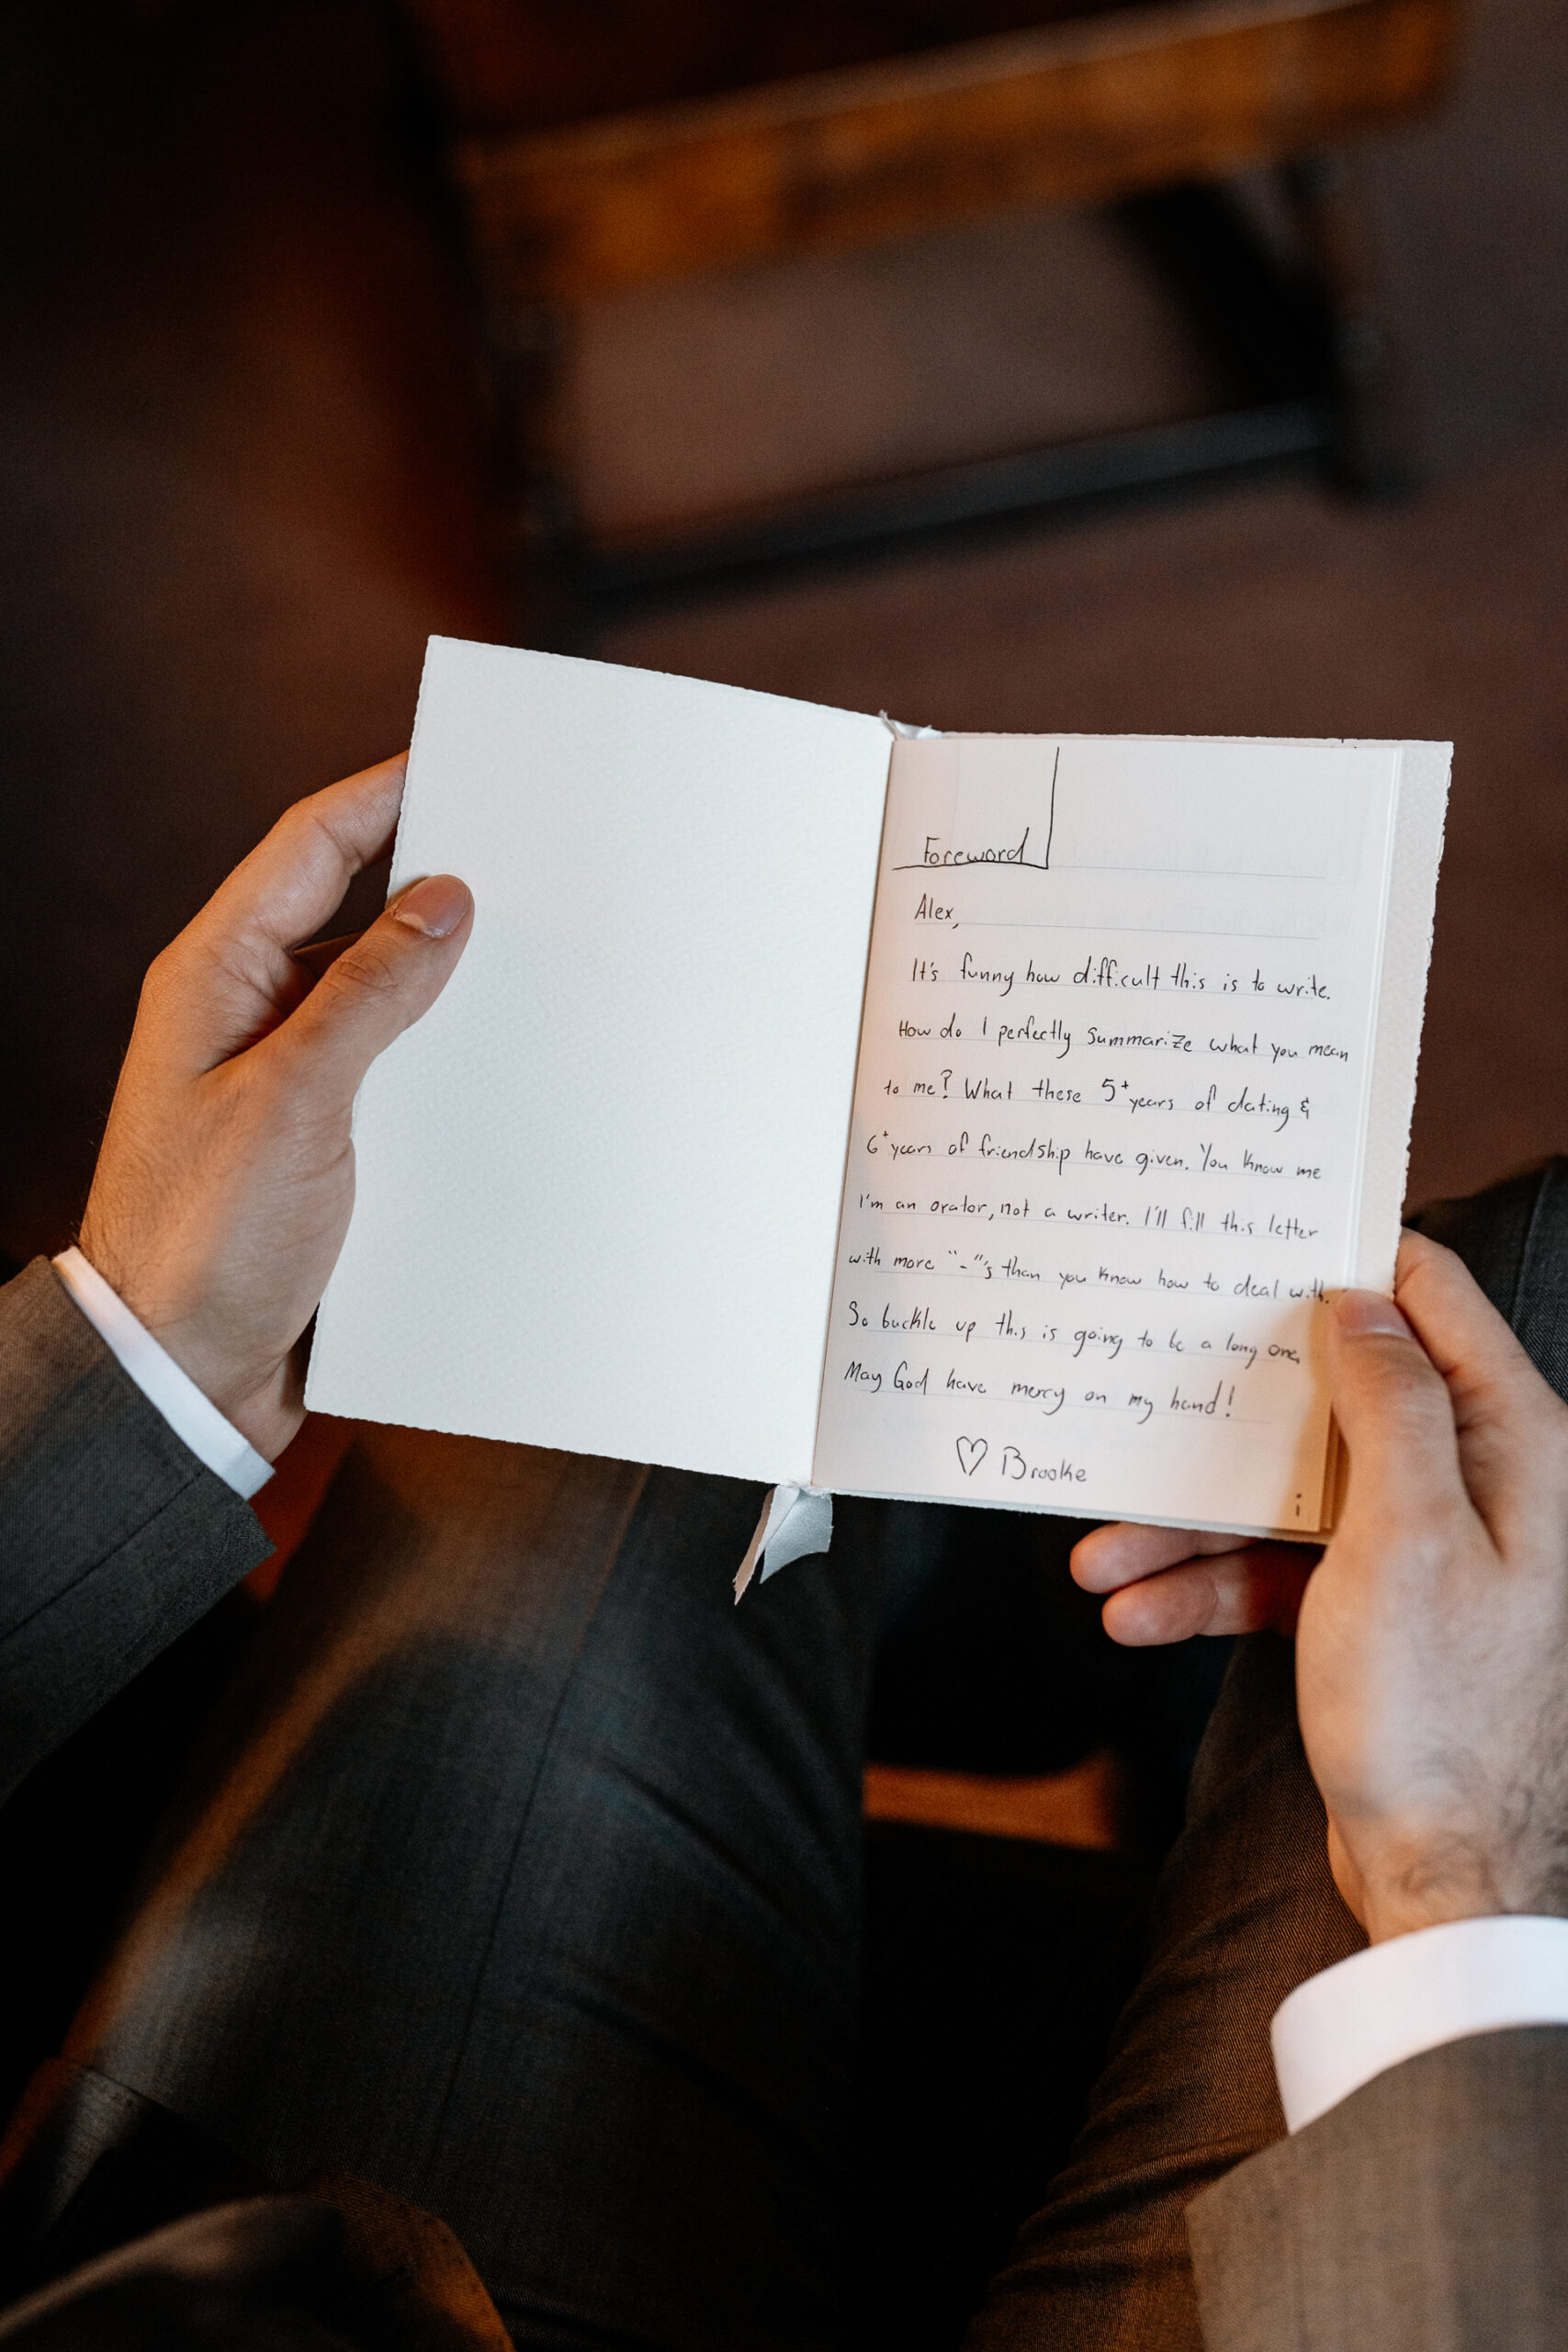 Foreword
Alex,
It's funny how difficult this is to write.
How do I perfectly summarize what you mean
to me? What these 5+ years of dating &
6+ years of friendship have given. You know me
I'm an orator, not a writer. I'll fill this letter
with more "-"'s than you know how to deal with.
So buckle up this is going to be a long one.
May God have mercy on my hand!
♡ Brooke
i